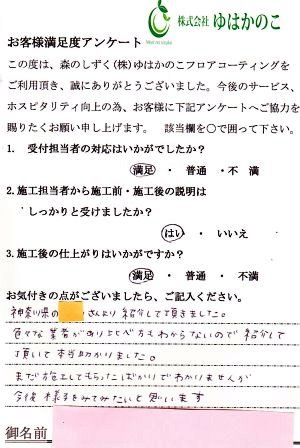 株式会社 ゆはかのこ
お客様満足度アンケート
この度は、森のしずく(株)ゆはかのこフロアコーティングを
ご利用頂き、誠にありがとうございました。今後のサービス、
ホスピタリティ向上の為、お客様に下記アンケートへご協力を
賜りたくお願い申し上げます。 該当欄を○で囲って下さい。
1. 受付担当者の対応はいかがでしたか?
満足 ・ 普通 ・不 満
2.施工担当者から施工前・施工後の説明は
しっかりと受けましたか?
はい ・ いいえ
3.施工後の仕上がりはいかがですか?
満足 ・ 普通 ・ 不満
お気付きの点がございましたら、ご記入ください。
神奈川県の さんより紹介して頂きました。
色々な業者がありよべ方もわからないので紹介して
頂いて本当助かりました。
まだ施工してもらったばかりでわかりませんが
今後様子をみてみたいと思います
御名前